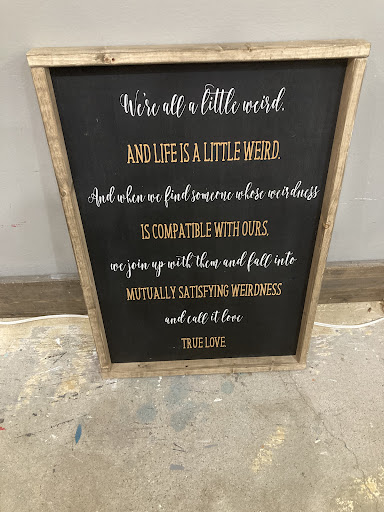 We're all a little weird.
AND LIFE IS A LITTLE WEIRD.
And when we find someone whose weirdness
IS COMPATIBLE WITH OURS,
we join up with them and fall into
MUTUALLY SATISFYING WEIRDNESS
and call it love
TRUE LOVE.